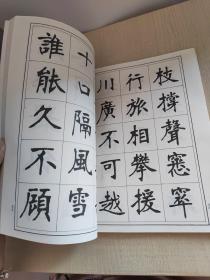 枝撐聲窸窣
行旅相攀援
川廣不可越
十口隔風雪
誰能久不顧